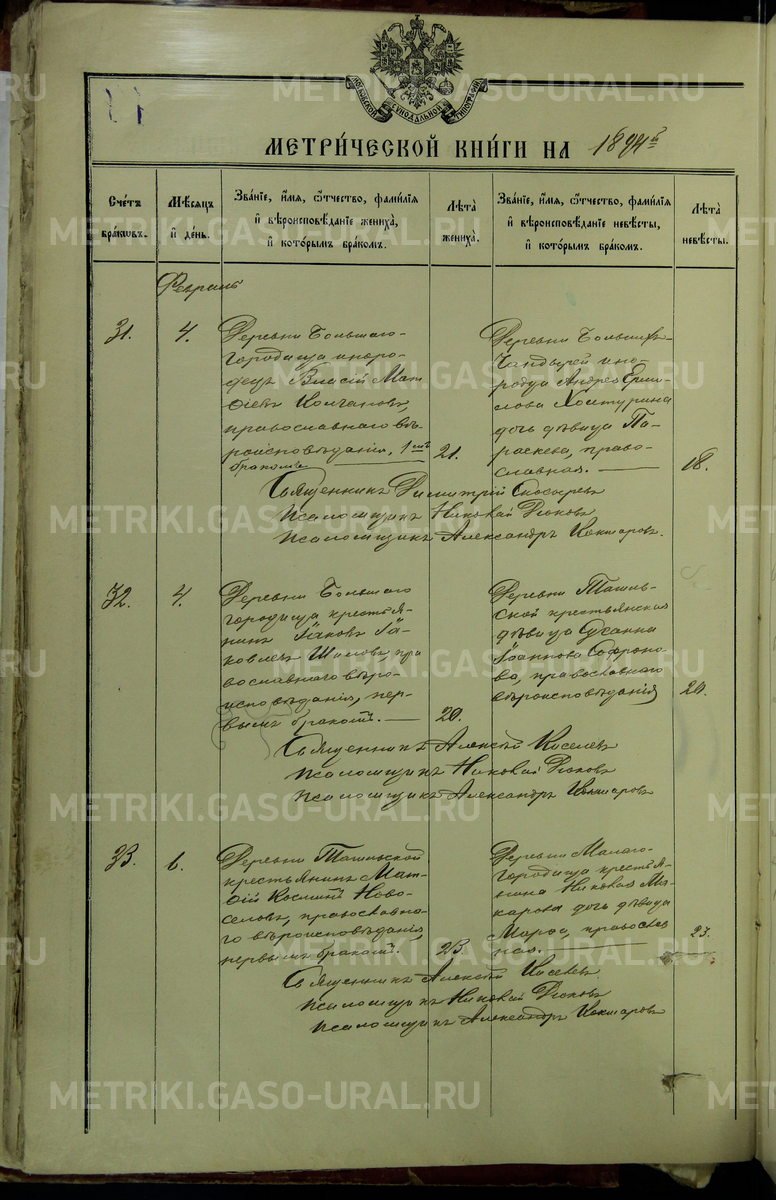 МЕТРИ́ЧЕСКОЙ КНИ́ГИ НА 1894 г.
Сче́тъ бра́кωвъ.
Мѣ́сяцъ и҆ де́нь.
Зва́нїе, и҆́мя, ѻ҆́тчество, фами́лїя и҆ вѣроисповѣ́данїе жениха̀, и҆ кото́рымъ бра́комъ.
Лѣ́та жениха̀.
Зва́нїе, и҆́мя, ѻ҆́тчество, фами́лїя и҆ вѣроисповѣ́данїе невѣ́сты, и҆ кото́рымъ бра́комъ.
Лѣ́та невѣ́сты.
Февраль
31.
4.
Деревни Большаго-
городища иноро-
децъ Власiй Мат
ѳiевъ Колчановъ,
православнаго вѣ-
роисповѣданiя, 1мъ
бракомъ
21.
Деревни Большихъ-
ино-
родца Андрея Ерми-
лова
дочь дѣвица Па-
раскева, право-
славная.
18.
Священникъ Димитрiй Скосыревъ
Псаломщикъ Николай Дюковъ
Псаломщикъ Александръ
32.
4.
Деревни Большаго
городища крестья-
нинъ Iаковъ Iа-
ковлевъ Шиловъ, пра
вославнаго вѣро-
исповѣданiя, пер-
вымъ бракомъ.
20.
Деревни Ташиль-
ской крестьянская
дѣвица Сусанна
Iоаннова Софроно-
ва, православнаго
вѣроисповѣданiя
20.
Священникъ Алексѣй Киселевъ
Псаломщикъ Николай Дюковъ
Псаломщикъ Александръ
33.
6.
Деревни Ташильской
крестьянинъ Мат-
ѳiй Косминъ Ново-
селовъ, православна-
го вѣроисповѣданiя,
первымъ бракомъ.
23.
Деревни Малаго-
городища крестья-
нина Николая Ма-
карова дочь дѣвица
Марѳа, православ
ная.
23.
Священникъ Алексѣй Киселевъ
Псаломщикъ Николай Дюковъ
Псаломщикъ Александръ
METRIKI.GASO-URAL.RU